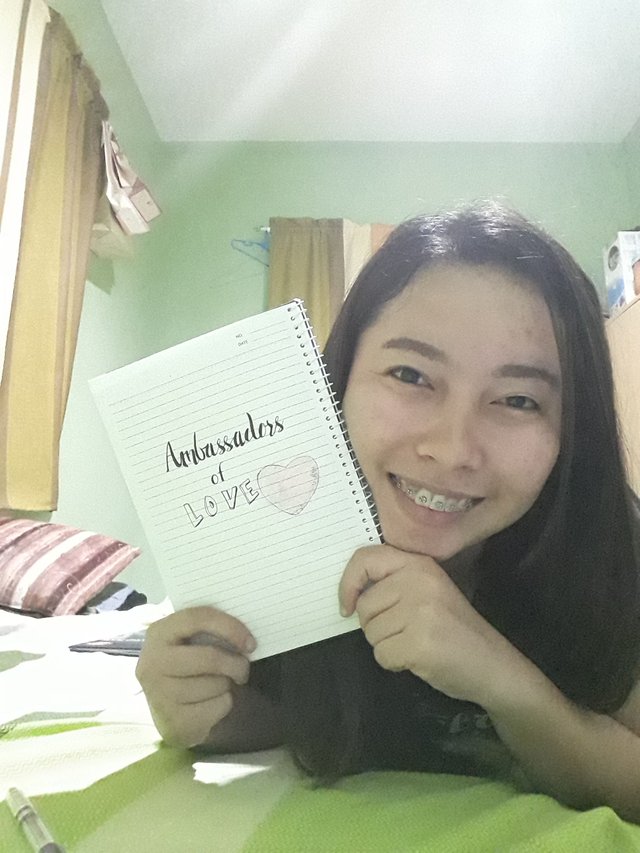 NO.
DATE
Ambassadors
of
LOVE